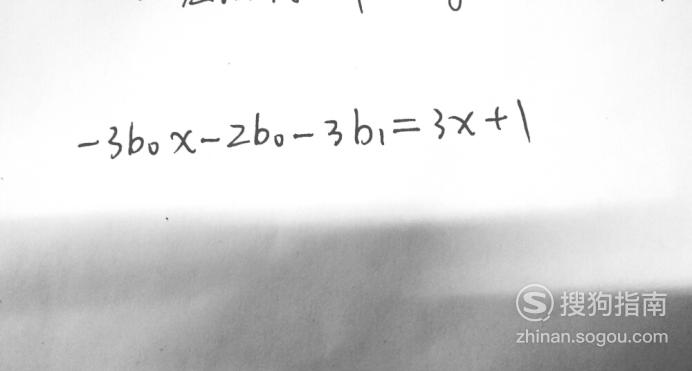 -3b₀x-2b₀-3b₁=3x+1
S 搜狗指南
zhinan.sogou.com